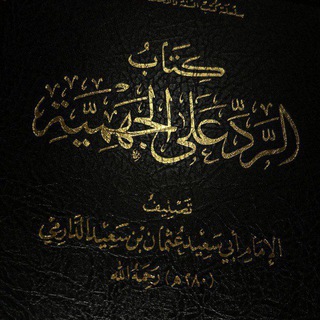 كِتَابُ
الرَّدِّ عَلَى الجَهْمِيَّةِ
تَصْنِيفُ
الإِمَامِ أَبِي سَعِيْدٍ عُثْمَانَ بْنِ سَعِيدٍ الدَّارِمِيِّ
(٢٨٠ هـ) رَحِمَهُ اللهُ